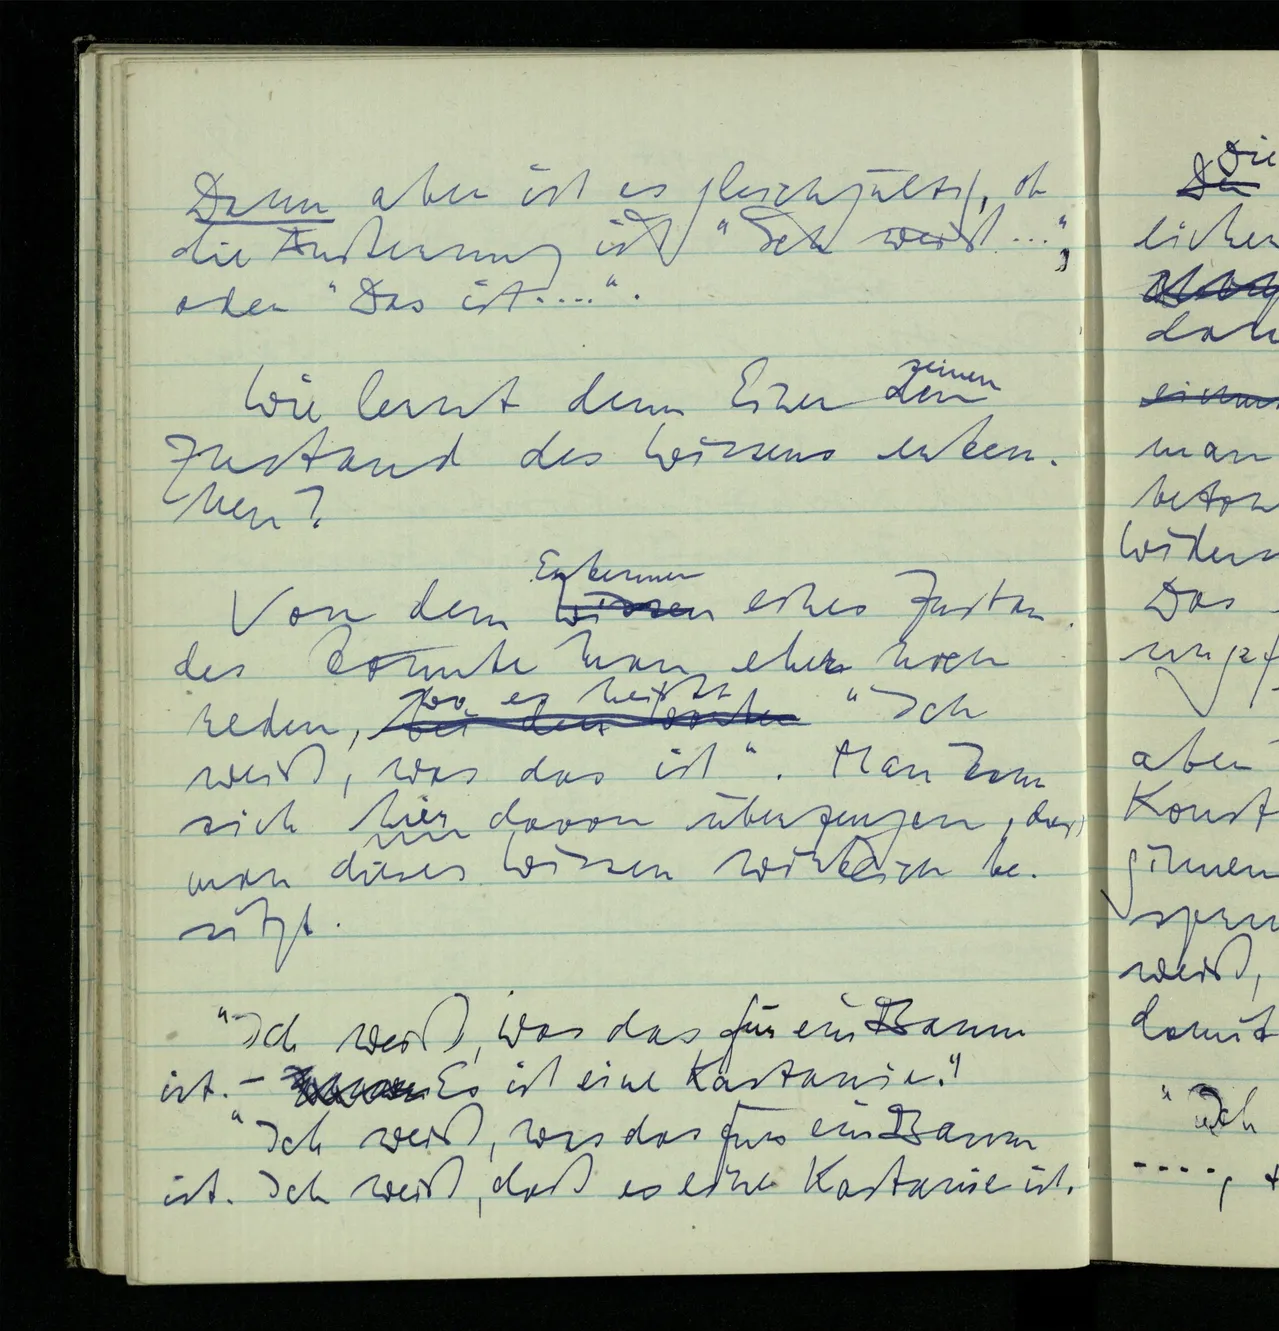 Dann aber ist es gleichgültig, ob
die Äußerung ist "Ich weiß ..."
oder "Das ist....".
Wie lernt denn Einer den seinen
Zustand des Wissens erken-
nen?
Von dem Wissen Erkennen eines Zustan-
des könnte man eher noch
reden, bei den Worten wo es heißt "Ich
weiß, was das ist". Man kann
sich hier davon überzeugen, daß
man dieses Wissen wirklich be-
sitzt.
"Ich weiß, was das für ein Baum
ist. – Es ist eine Kastanie."
"Ich weiß, was das für ein Baum
ist. Ich weiß, daß es eine Kastanie ist.
Die
lichen
man
Das
aber
weiß,
damit
"Ich
....,